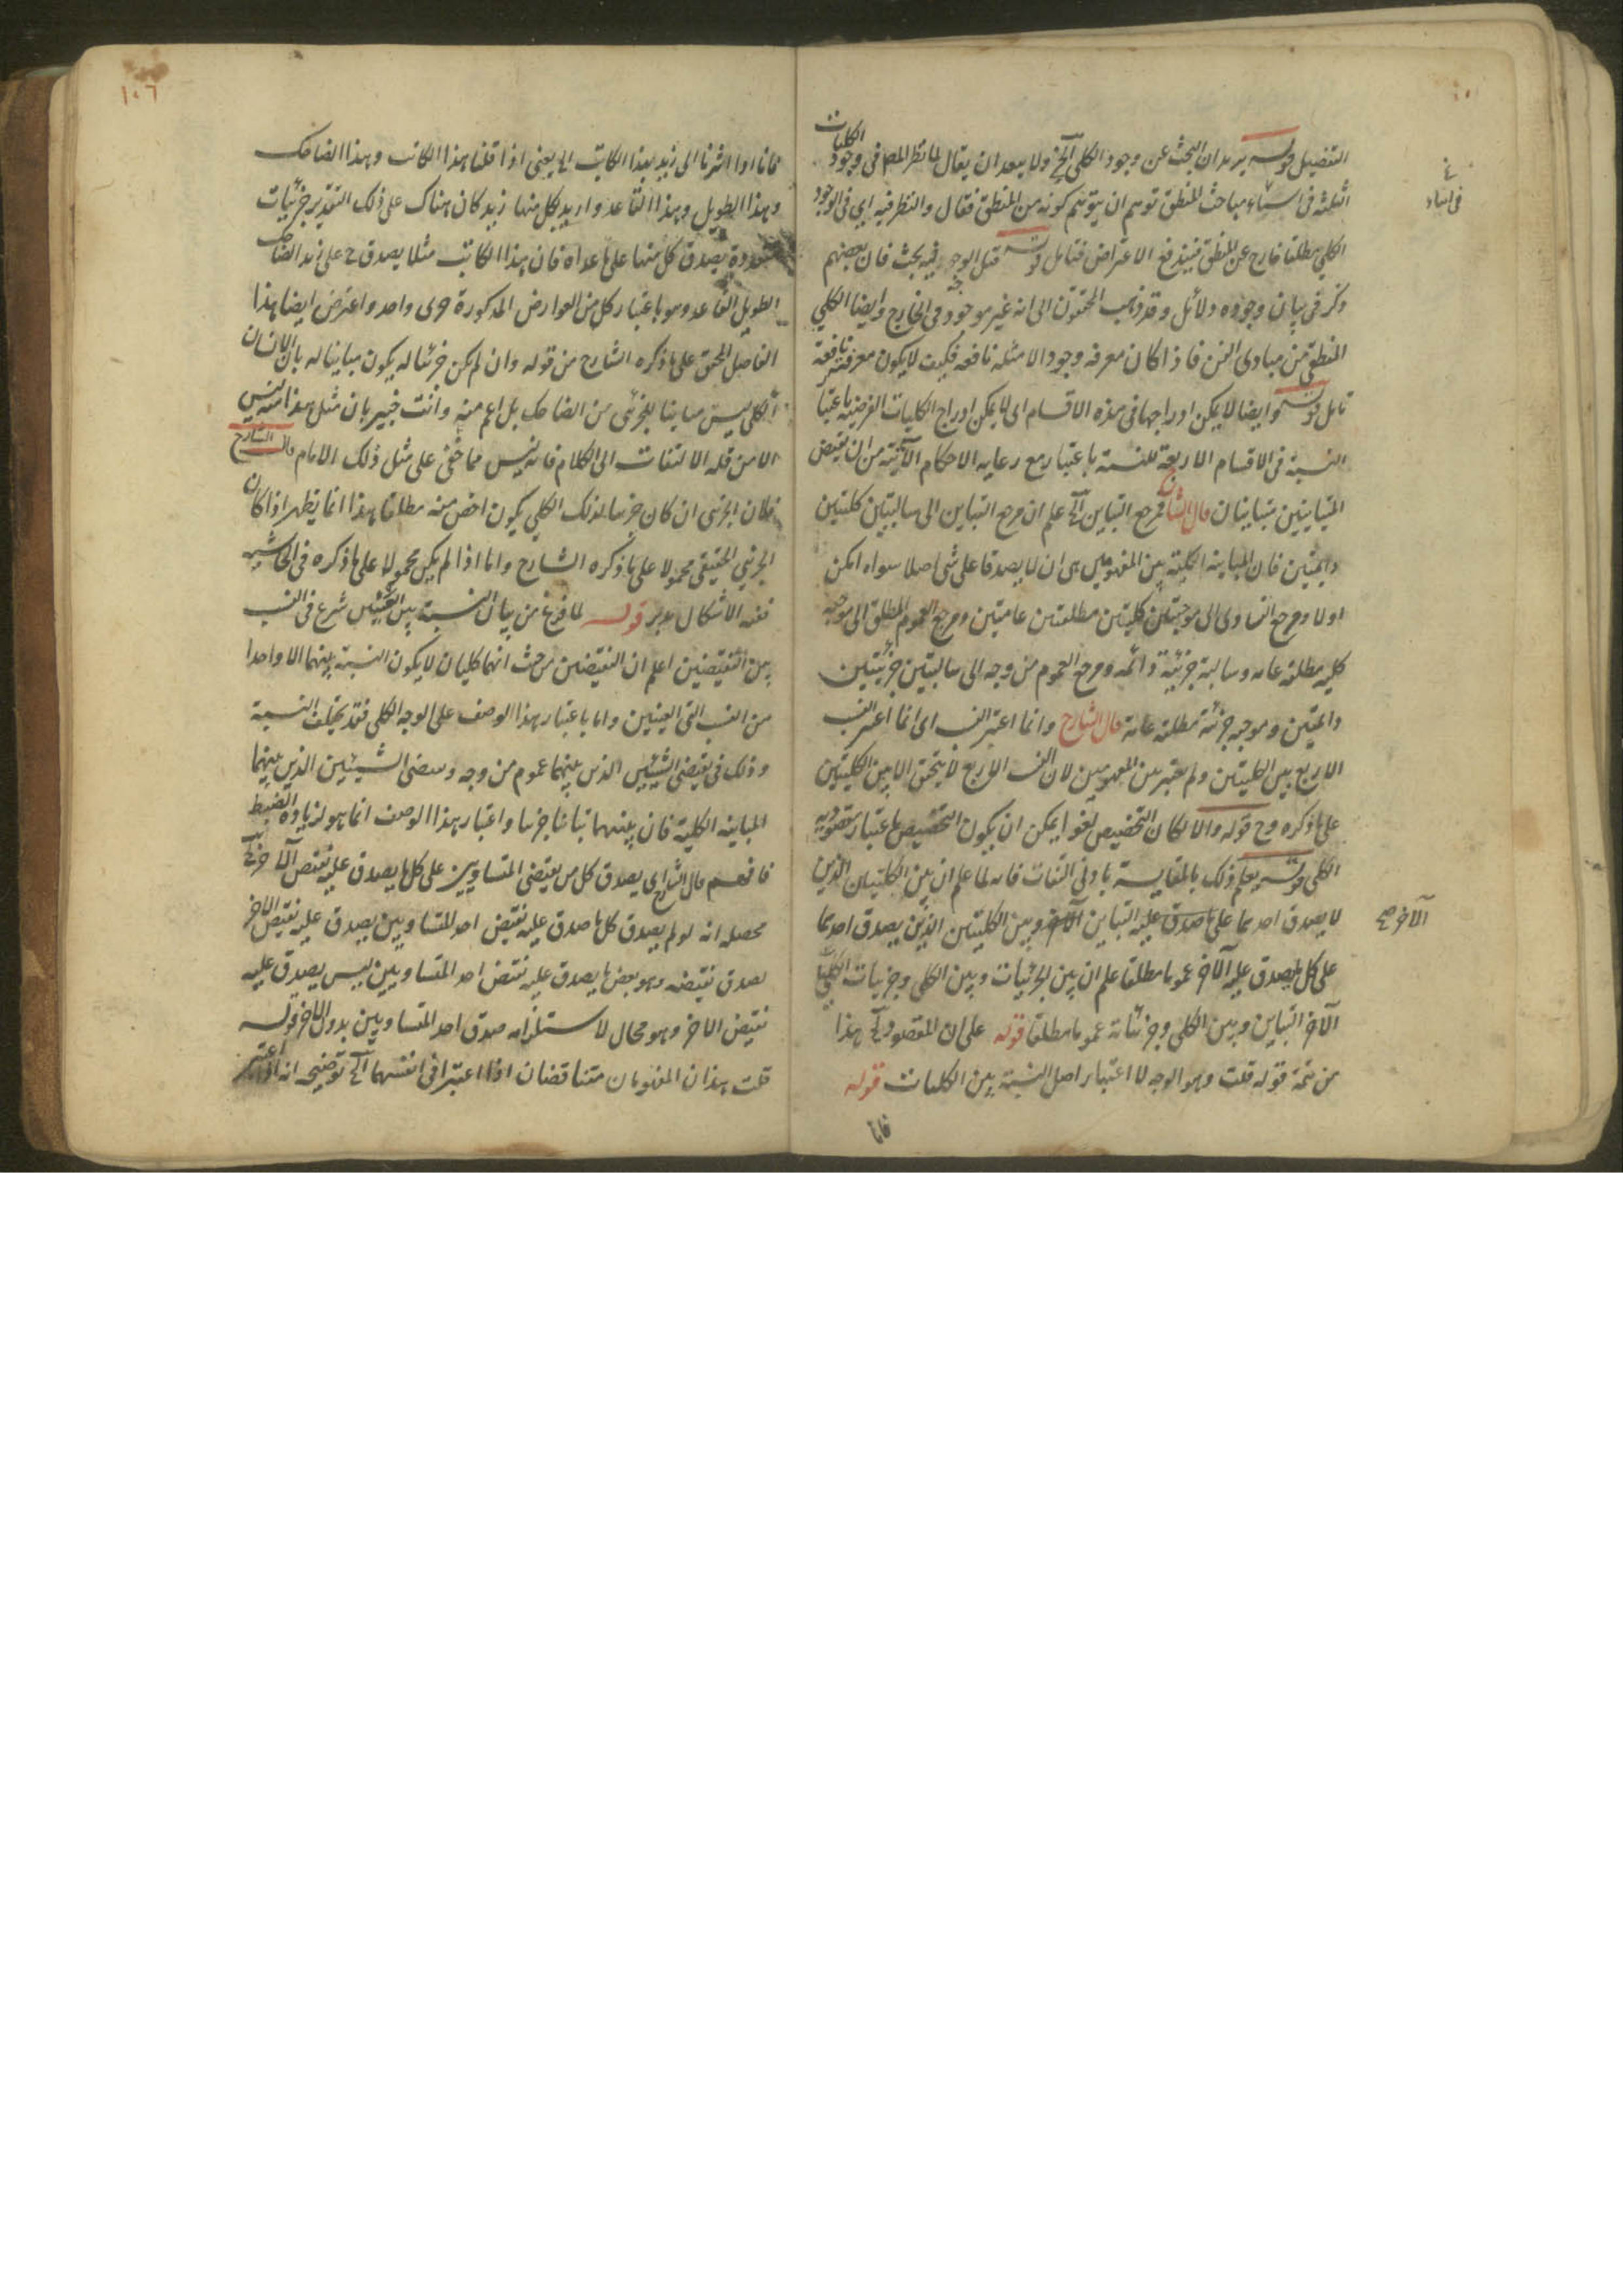 التفصيل قوله يريد ان البحث عن وجود الكلى الخ ولا يبعد ان يقال لما نظر المص فى وجود الكليات
الثلثه فى اثناء مباحث المنطق توهم ان يتوهم كونه من المنطق فقال والنظر فيه اى فى الوجود
الكلى مطلقا خارج عن المنطق فيندفع الاعتراض فتأمل قوله قبل الوجه فيه بحث فان بعضهم
ذكر فى بيان وجوده دلائل وقد ذهب المحققون الى انه غير موجود فى الخارج وايضا الكلى
المنطقى من مبادى الفن فاذا كان معرفة وجود الامثله نافعه فكيف لا يكون معرفته نافعة
تامل قوله وايضا لا يمكن ادراجها فى هذه الاقسام اى لا يمكن ادراج الكليات الفرضيه باعتبار
النسبة فى الاقسام الاربعة للنسبة باعتبار مع رعايه الاحكام الآتية من ان نقيض
المتباينين متباينان قال الشارح فمرجع التباين الخ علم ان مرجع التباين الى سالبتين كليتين
دايمتين فان المباينة الكلية بين المفهومين هى ان لا يصدقا على شى اصلا سواء امكن
اولا ومرجع التساوى الى موجبتين كليتين مطلقتين عامتين ومرجع العموم المطلق الى موجبه
كليه مطلقة عامه وسالبة جزئية دائمه ومرجع العموم من وجه الى سالبتين جزئيتين
دائمتين وموجبه جزئية مطلقة عامة قال الشارح وانما اعتبر النسب اى انما اعتبر النسب
الاربع بين الكليتين ولم يعتبر بين المفهومين لان النسب الاربع لا يتحقق الا بين الكليتين
على ما ذكره وح قوله والا لكان التخصيص لغوا يمكن ان يكون التخصيص باعتبار مقصوديه
الكلى قوله يعلم ذلك بالمقايسة بادنى التفات فانه لما علم ان بين الكليتين الذين
لا يصدق احدهما على ما صدق عليه التباين وبين الكليتين الذين يصدق احدهما
على كل ما يصدق عليه الآخر عموما مطلقا علم ان بين الجزئيات وبين الكلى وجزئيات الكلى
الآخر التباين وبين الكلى وجزئياته عموما مطلقا قوله على ان المقصود الخ هذا
من تتمة قوله قلت وهو الوجه لا اعتبار اصل النسبة بين الكليات قوله
فانا
فى اثناء
الآخر صح
١٠٦
فانا اذا اشرنا الى زيد بهذا الكاتب الخ يعنى اذا قلنا هذا الكاتب وهذا الضاحك
وهذا الطويل وهذا القاعد واريد بكل منها زيد كان هناك على ذلك التقدير جزئيات
متعددة يصدق كل منها على ما عداه فان هذا الكاتب مثلا يصدق ح على هذا الضاحك
الطويل القاعد وهو باعتبار كل من العوارض المذكورة جزئى واحد واعترض ايضا هذا
الفاضل المحقق على ما ذكره الشارح من قوله وان لم يكن جزئيا له يكون مباينا له بان الانسان
الكلى ليس مباينا للجزئى من الضاحك بل اعم منه وانت خبير بان مثل هذا منه ليس
الا من قلة الالتفات الى الكلام فانه ليس مما خفى على مثل ذلك الامام قال الشارح
فلان الجزئى ان كان جزئيا لذلك الكلى يكون اخص منه مطلقا هذا انما يظهر اذا كان
الجزئى الحقيقى محمولا على ما ذكره الشارح واما اذا لم يكن محمولا على ما ذكره فى الحاشيه
ففيه الاشكال تدبر قوله لما فرغ من بيان النسبة بين العينين شرع فى النسب
بين النقيضين اعلم ان النقيضين من حيث انهما كليان لا يكون النسبة بينهما الا واحدا
من النسب التى العينين واما باعتبار هذا الوصف على الوجه الكلى فقد يختلف النسبة
وذلك فى نقيضى الشيئين الذين بينهما عموم من وجه ونقيضى الشيئين الذين بينهما
المباينه الكلية فان بينهما تباينا جزئيا واعتبار هذا الوصف انما هو لزيادة الضبط
فافهم قال الشارح اى يصدق كل من نقيضى المتساويين على كل ما يصدق عليه نقيض الآخر
محصله انه لو لم يصدق كل ما صدق عليه نقيض احد المتساويين يصدق عليه نقيض الآخر
لصدق نقيضه وهو بعض ما يصدق عليه نقيض احد المتساويين ليس يصدق عليه
نقيض الآخر وهو محال لاستلزامه صدق احد المتساويين بدون الآخر قوله
قلت هذان المفهومان متناقضان اذا اعتبرا فى انفسهما الخ توضيحه انه اذا اعتبر